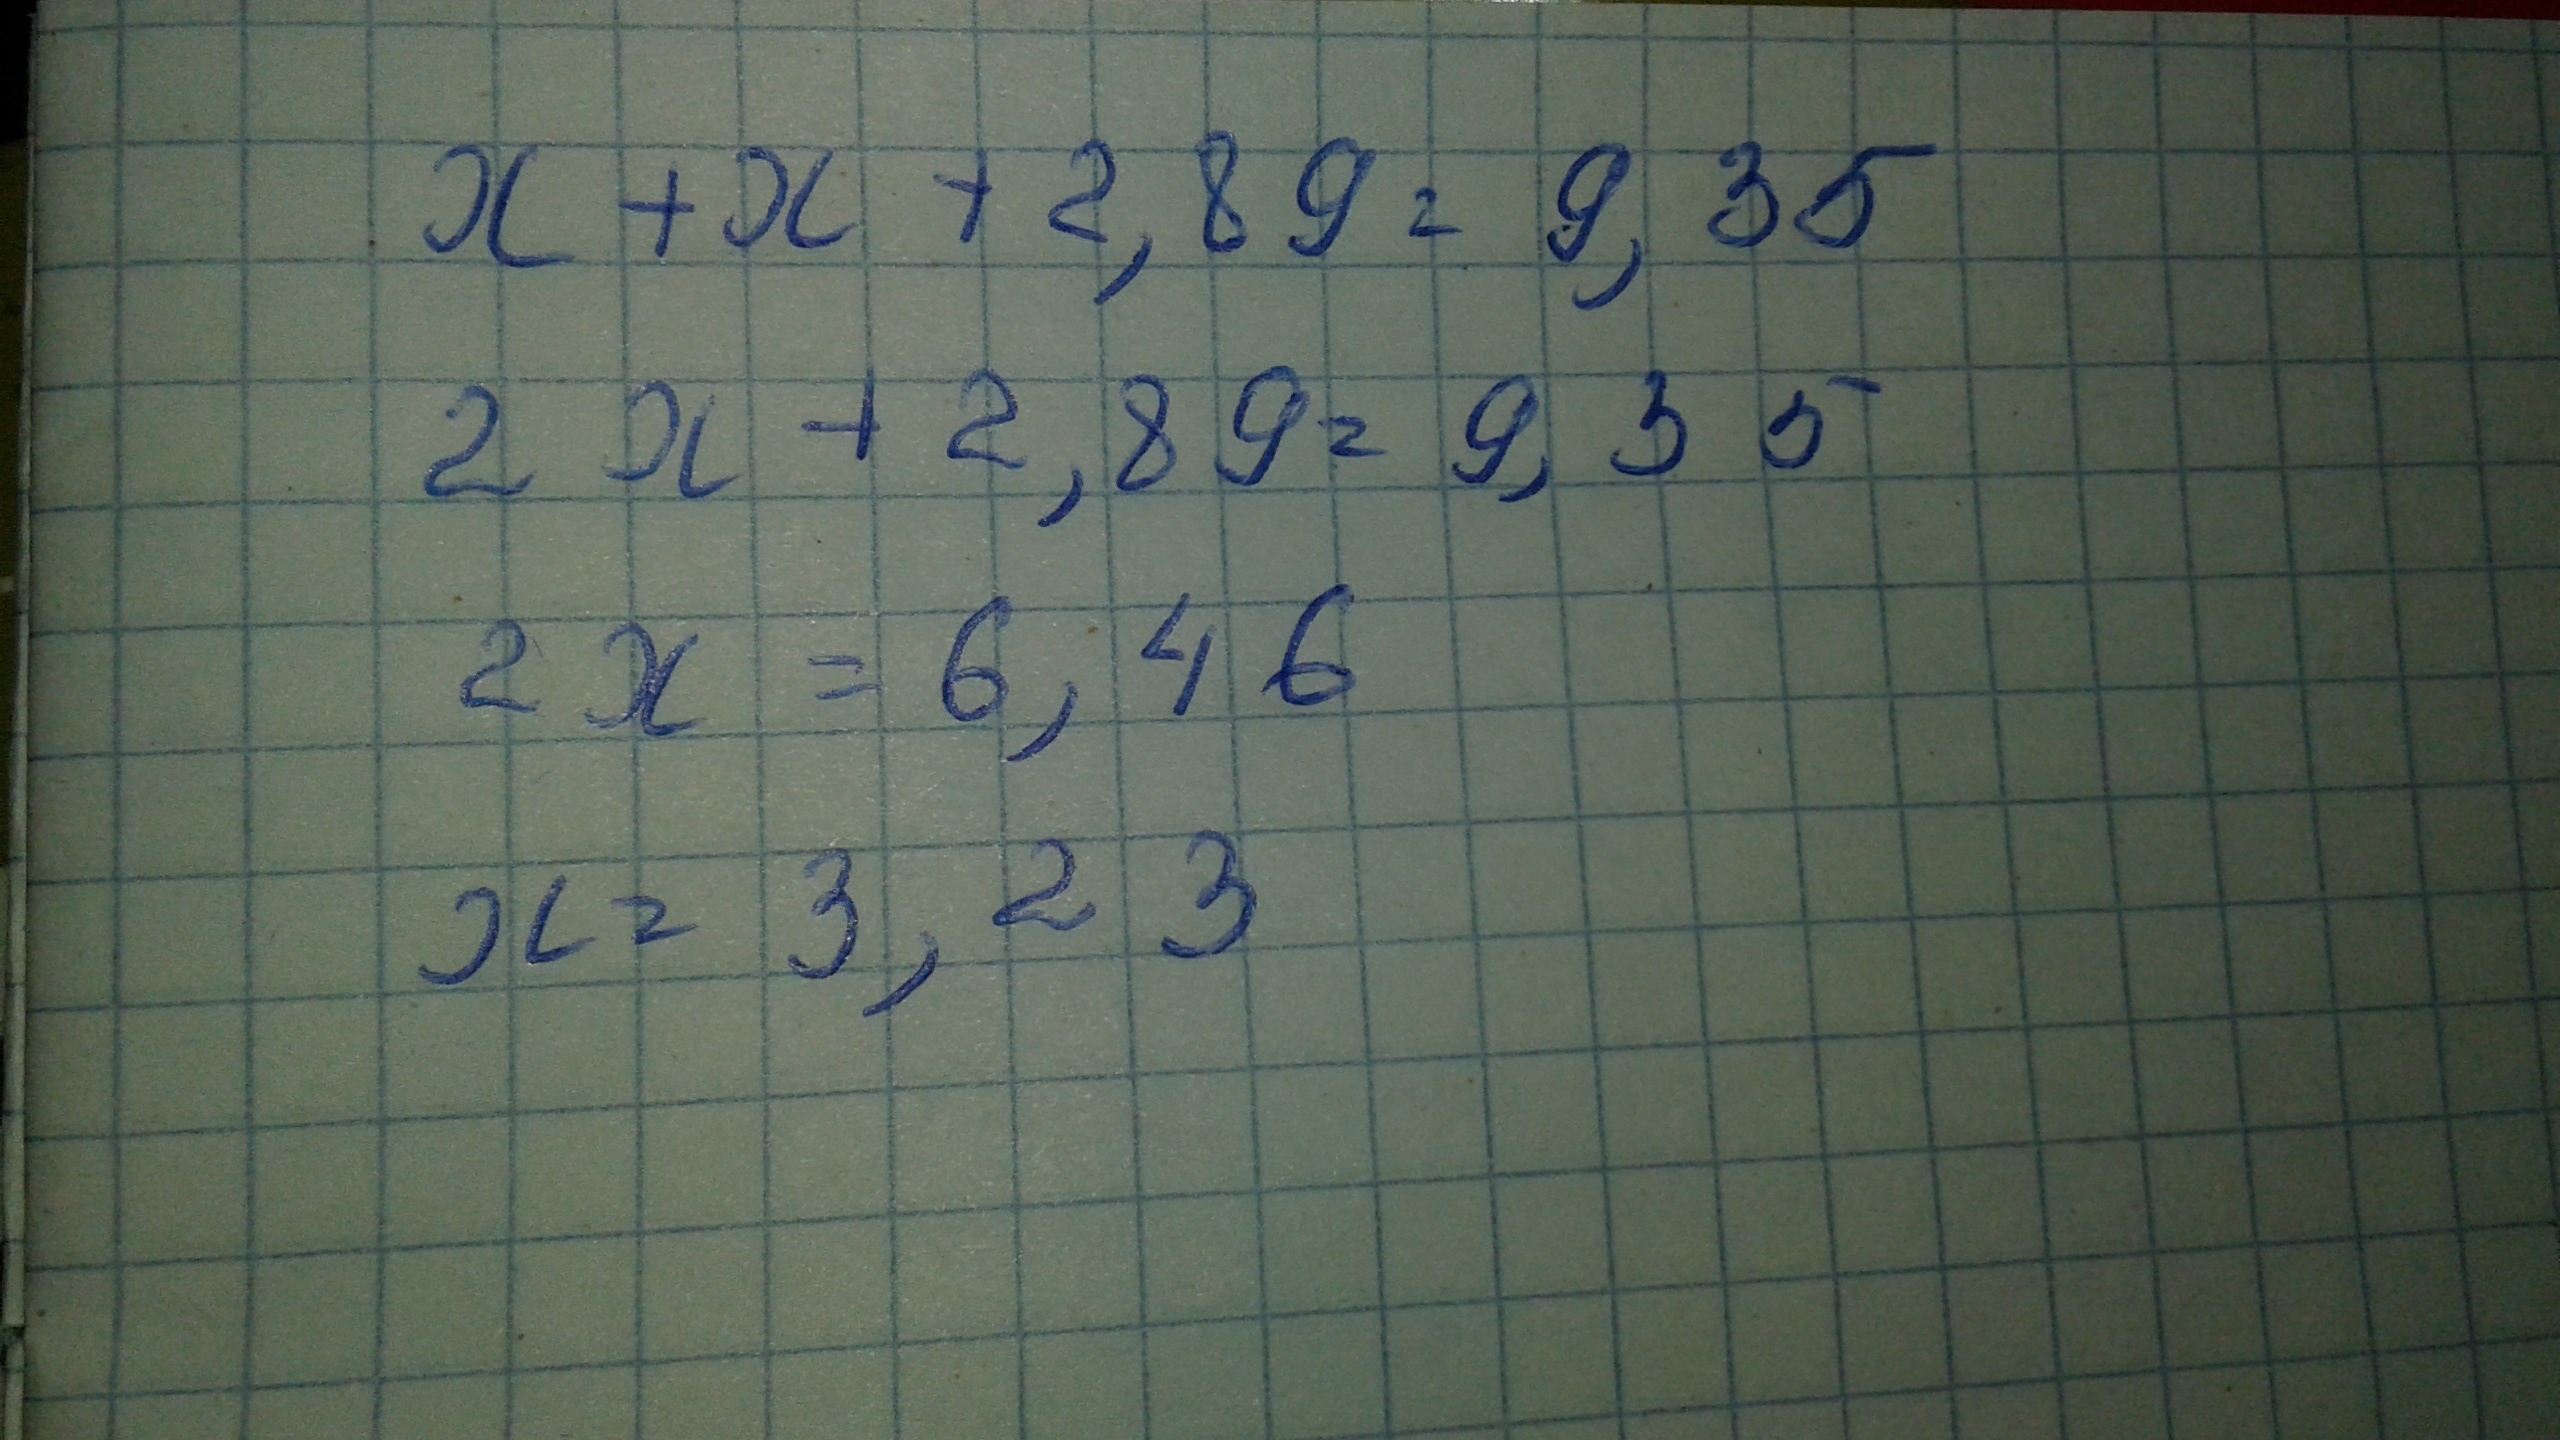 x + x + 2,89 = 9,35
2x + 2,89 = 9,35
2x = 6,46
x = 3,23